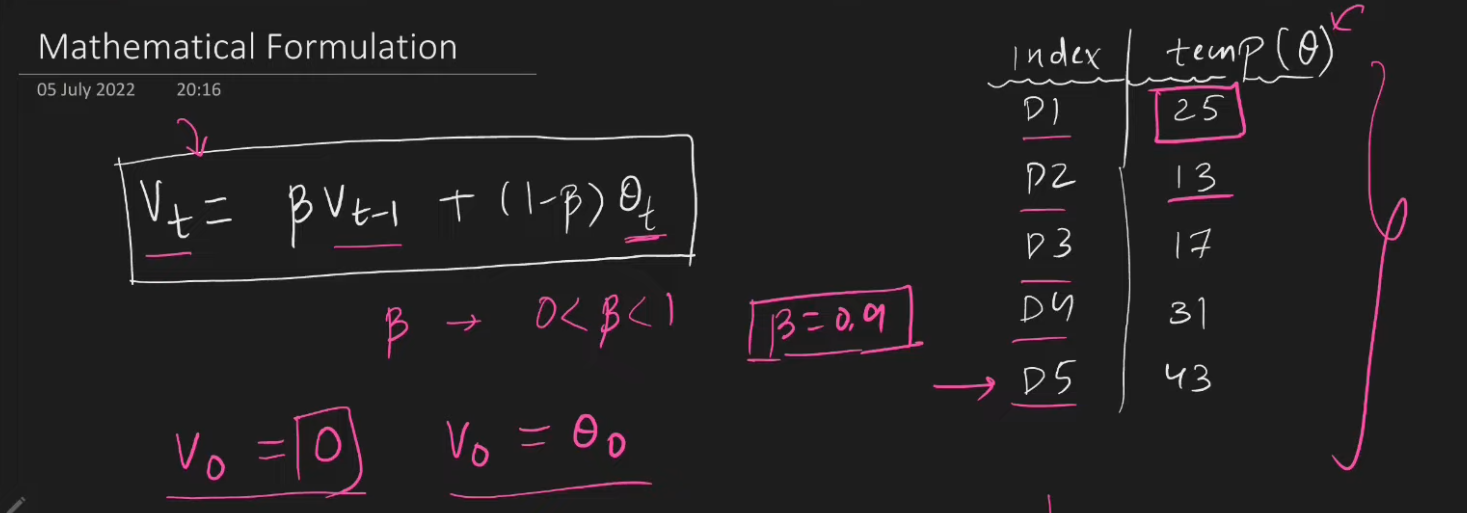 Mathematical Formulation
05 July 2022 20:16
Vt = βVt-1 + (1-β) θt
β → 0<β<1
β=0.9
V0 = 0
V0 = θ0
index temp(θ)
D1 25
D2 13
D3 17
D4 31
D5 43